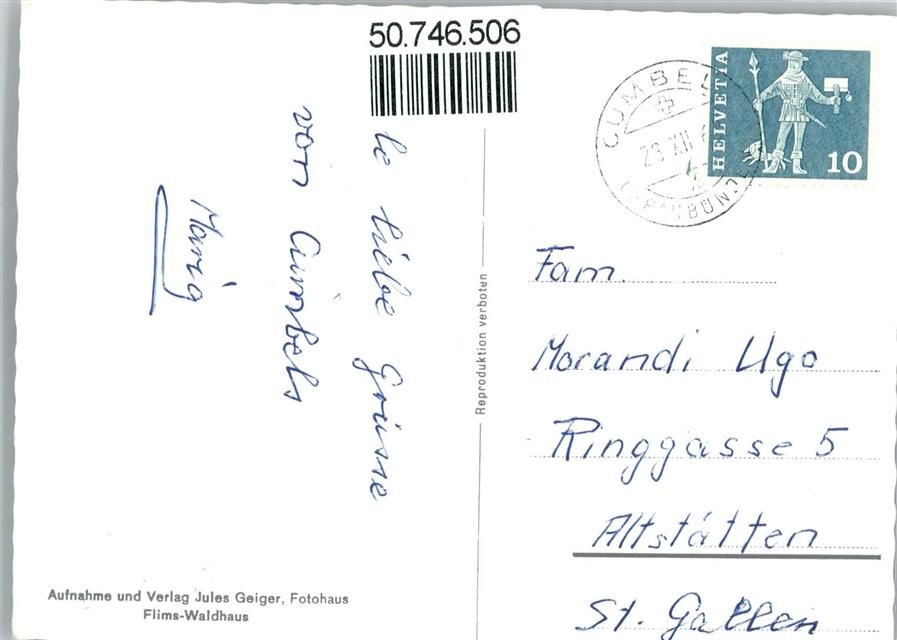 50.746.506
le liebe Grüsse
von Cumbels
Maria
Reproduktion verboten
Aufnahme und Verlag Jules Geiger, Fotohaus
Flims-Waldhaus
CUMBEL
23 XII
HELVETIA
10
Fam.
Morandi Ugo
Ringgasse 5
Altstätten
St. Gallen